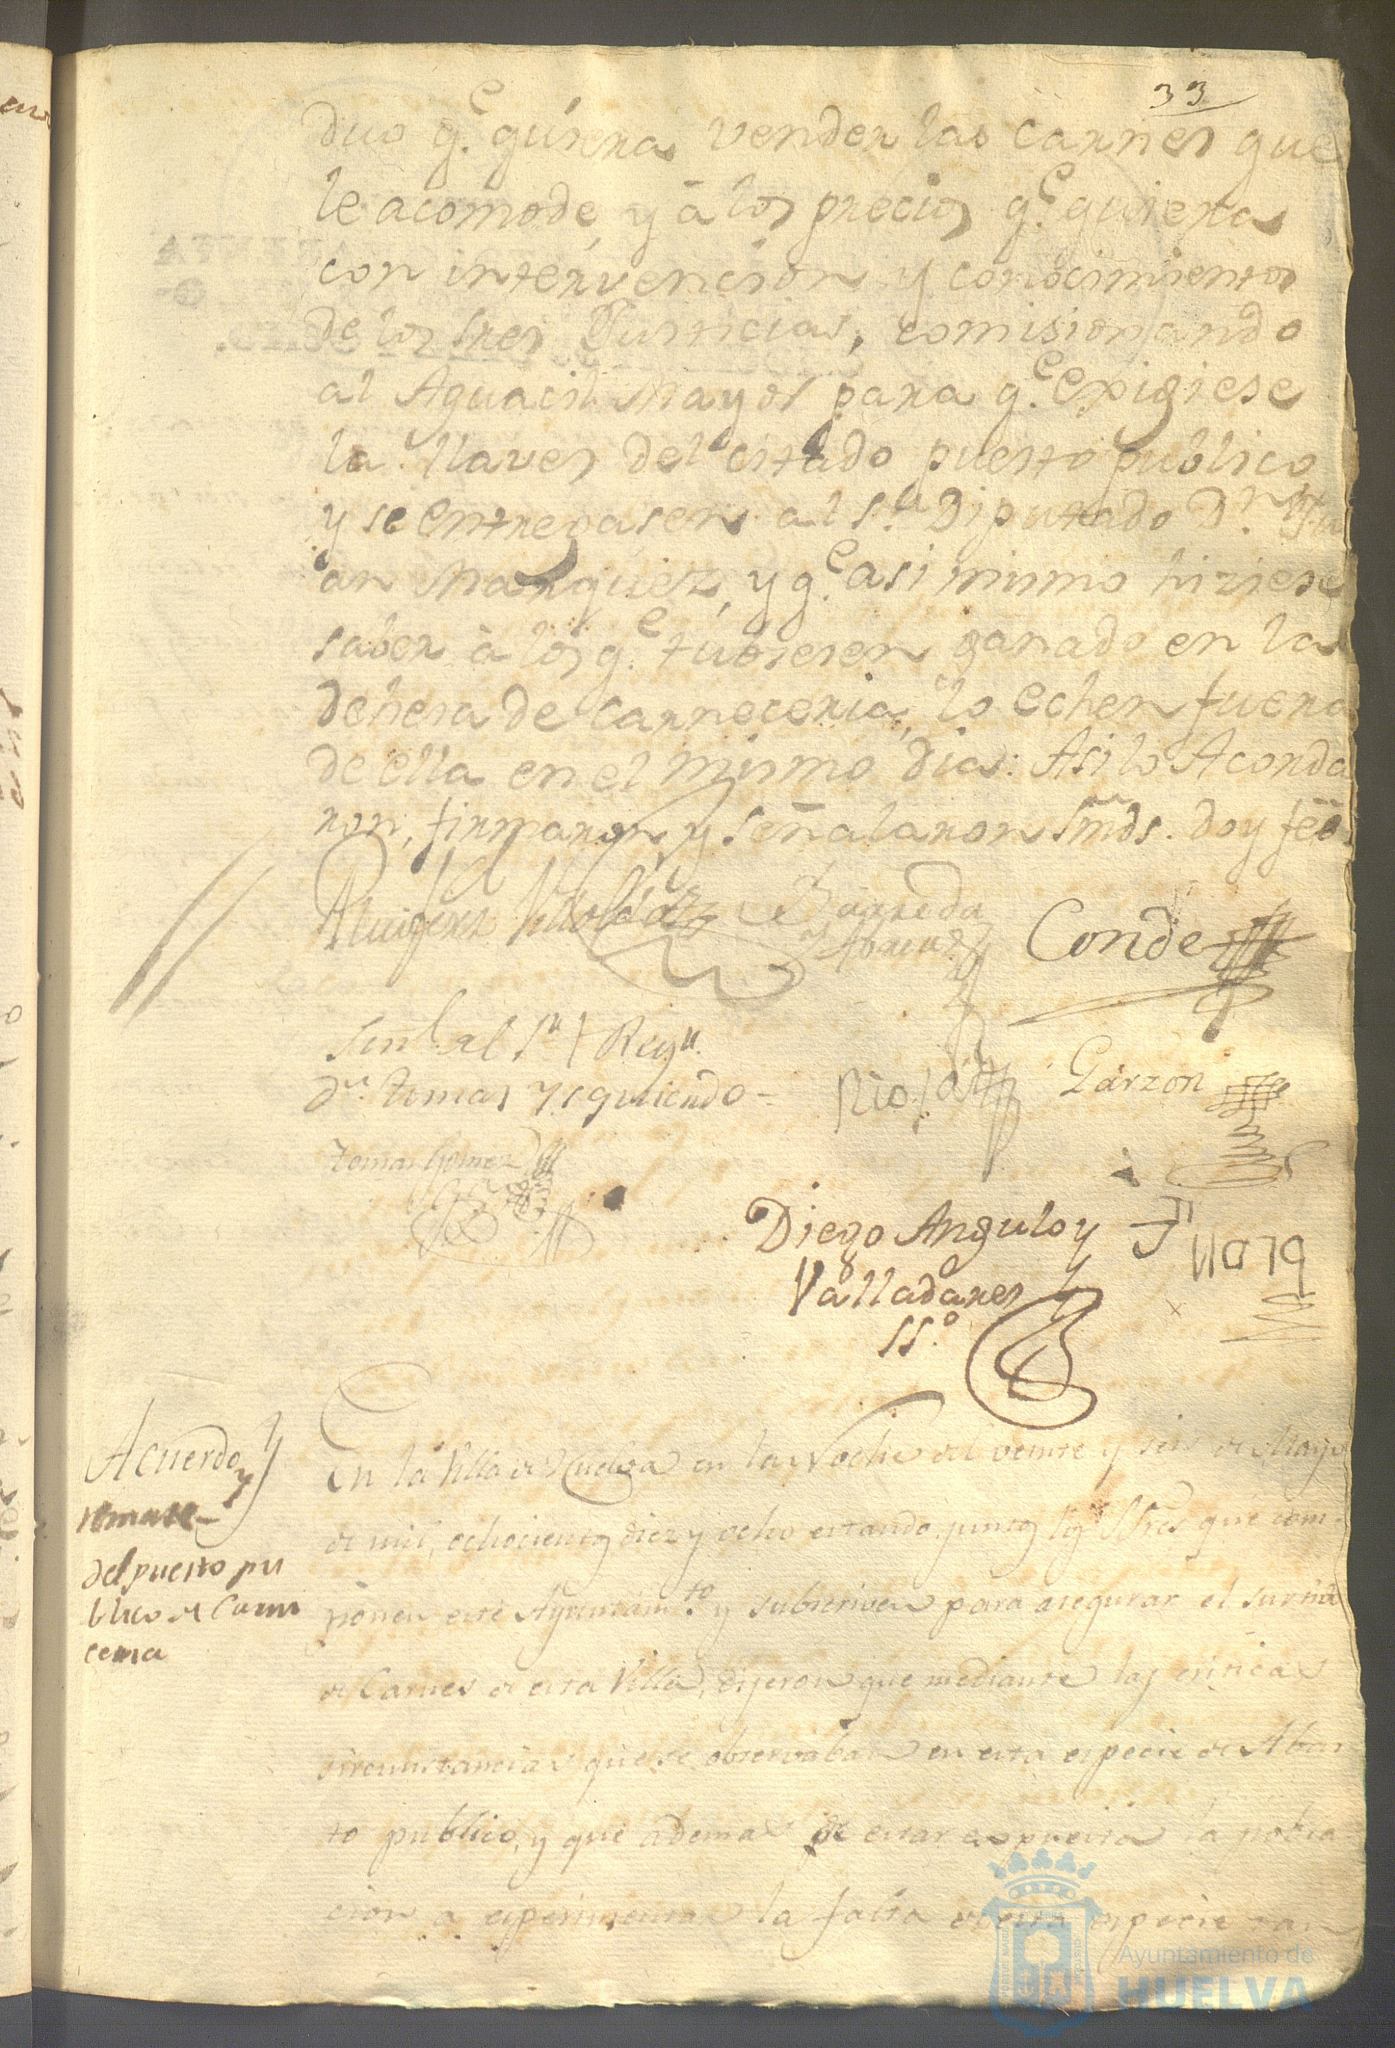 33
duo q.e quiera vender las carnes que
le acomode, y à los precios q.e quiera
con intervencion y conocimientos
de los Sres Justicias, comisionando
al Aguacil Mayor para q.e expigiese
la llaves del citado puesto publico
y se entregasen al S.r Diputado D.n Ju
an Marquez, y q.e asi mismo hiziese
saber à los q.e tubiesen ganado en la
dehesa de carneceria, lo echen fuera
de ella en el mismo dia: Asi lo Acorda
ron, firmaron, y señalaron Smds. doy feè
Barreda
Conde
Señl. el S.r Reg.r
D.n Tomas Ysquierdo =
Rio
Garzon
Tomas Gomez
Diego Angulo y
Valladares
SS.o
Acuerdo y
remate
del puesto pu
blico de Carni
ceria
En la Villa de Huelva en la Noche del veinte y seis de Mayo
de mil, ochocientos diez y ocho estando juntos los SSres que com-
ponen este Ayuntam.to y subscriven para asegurar el surtido
de Carnes de esta Villa, dijeron que mediante las criticas
circunstancias que se observaban en esta especie de Abas
to publico, y que ademas de estar expuesta la pobla
cion a esperimentar la falta de esta especie tan
Ayuntamiento de
HUELVA